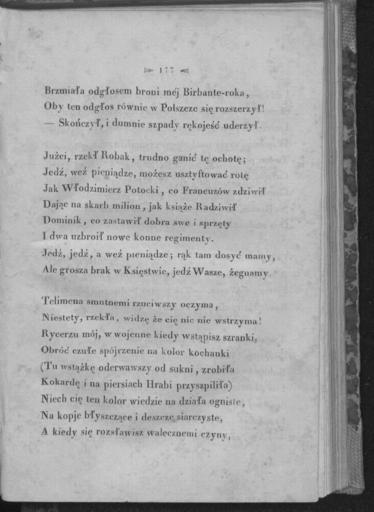 177
Brzmiała odgłosem broni méj Birbante-roka,
Oby ten odgłos równie w Polszcze się rozszerzył!
— Skończył, i dumnie szpady rękojeść uderzył.
Jużci, rzekł Robak, trudno ganić tę ochotę;
Jedź, weź pieniądze, możesz usztyftować rotę
Jak Włodzimierz Potocki, co Francuzów zdziwił
Dając na skarb milion, jak książe Radziwił
Dominik, co zastawił dobra swe i sprzęty
I dwa uzbroił nowe konne regimenty.
Jedź, jedź, a weź pieniądze; rąk tam dosyć mamy,
Ale grosza brak w Księstwie, jedź Wasze, żegnamy.
Telimena smutnemi rzuciwszy oczyma,
Niestety, rzekła, widzę że cię nic nie wstrzyma!
Rycerzu mój, w wojenne kiedy wstąpisz szranki,
Obróć czułe spójrzenie na kolor kochanki
(Tu wstążkę oderwawszy od sukni, zrobiła
Kokardę i na piersiach Hrabi przyszpiliła)
Niech cię ten kolor wiedzie na działa ogniste,
Na kopje błyszczące i deszcze siarczyste,
A kiedy się rozsławisz walecznemi czyny,